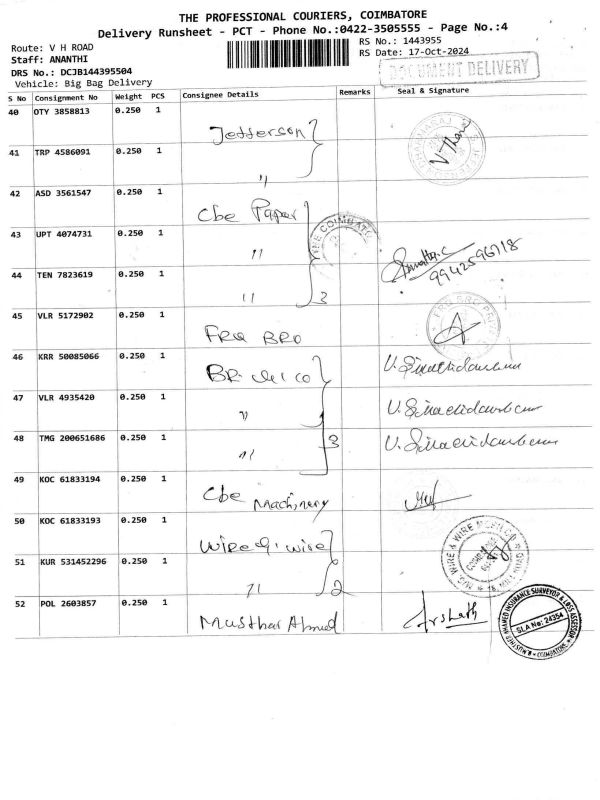 THE PROFESSIONAL COURIERS, COIMBATORE
Delivery Runsheet - PCT - Phone No.:0422-3505555 - Page No.:4
Route: V H ROAD
RS No.: 1443955
Staff: ANANTHI
RS Date: 17-Oct-2024
DRS No.: DCJB144395504
DOCUMENT DELIVERY
Vehicle: Big Bag Delivery
S No Consignment No Weight PCS Consignee Details Remarks Seal & Signature
40 OTY 3858813 0.250 1 Jefferson
41 TRP 4586091 0.250 1 "
42 ASD 3561547 0.250 1 Cbe Paper
43 UPT 4074731 0.250 1 "
THE COIMBATO
9942596718
44 TEN 7823619 0.250 1 " 3
45 VLR 5172902 0.250 1 Fra BRO
46 KRR 50085066 0.250 1
47 VLR 4935420 0.250 1 "
48 TMG 200651686 0.250 1 " 3
49 KOC 61833194 0.250 1 Cbe Machinery
50 KOC 61833193 0.250 1 Wire & wire
51 KUR 531452296 0.250 1 " 2
52 POL 2603857 0.250 1 Musthar Ahmed Arshath
INSURANCE SURVEYOR & LOSS ASSESSOR
SLA No: 24354
COIMBATORE